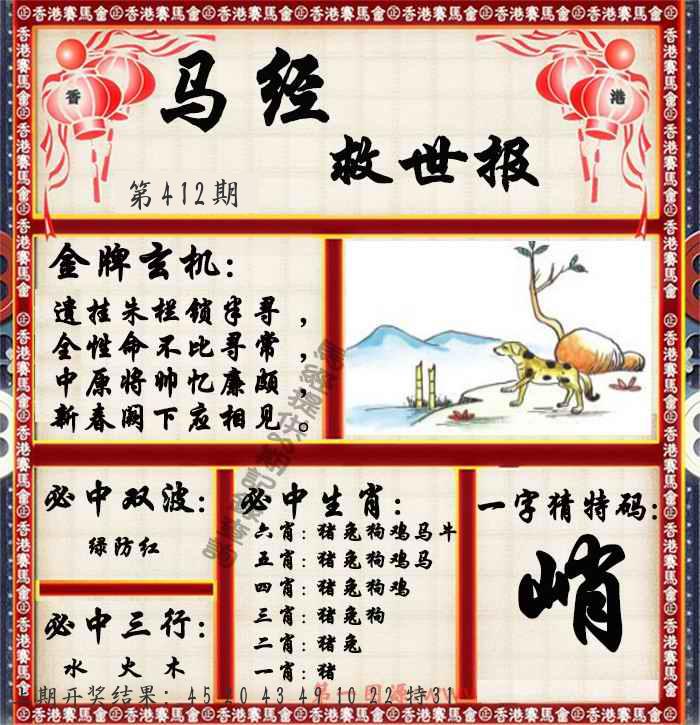 香港賽馬會㊣香港賽馬會㊣香港賽馬會㊣香港賽馬會㊣香港賽馬會㊣香港賽馬會
香
港
马经
救世报
第412期
金牌玄机:
遗挂朱栏锁半寻，
全性命不比寻常，
中原将帅忆廉颇，
新春阙下应相见。
必中双波:
绿防红
必中三行:
水 火 木
必中生肖:
六肖: 猪兔狗鸡马牛
五肖: 猪兔狗鸡马
四肖: 猪兔狗鸡
三肖: 猪兔狗
二肖: 猪兔
一肖: 猪
一字猜特码:
峭
期开奖结果: 45 20 43 49 10 22 特31